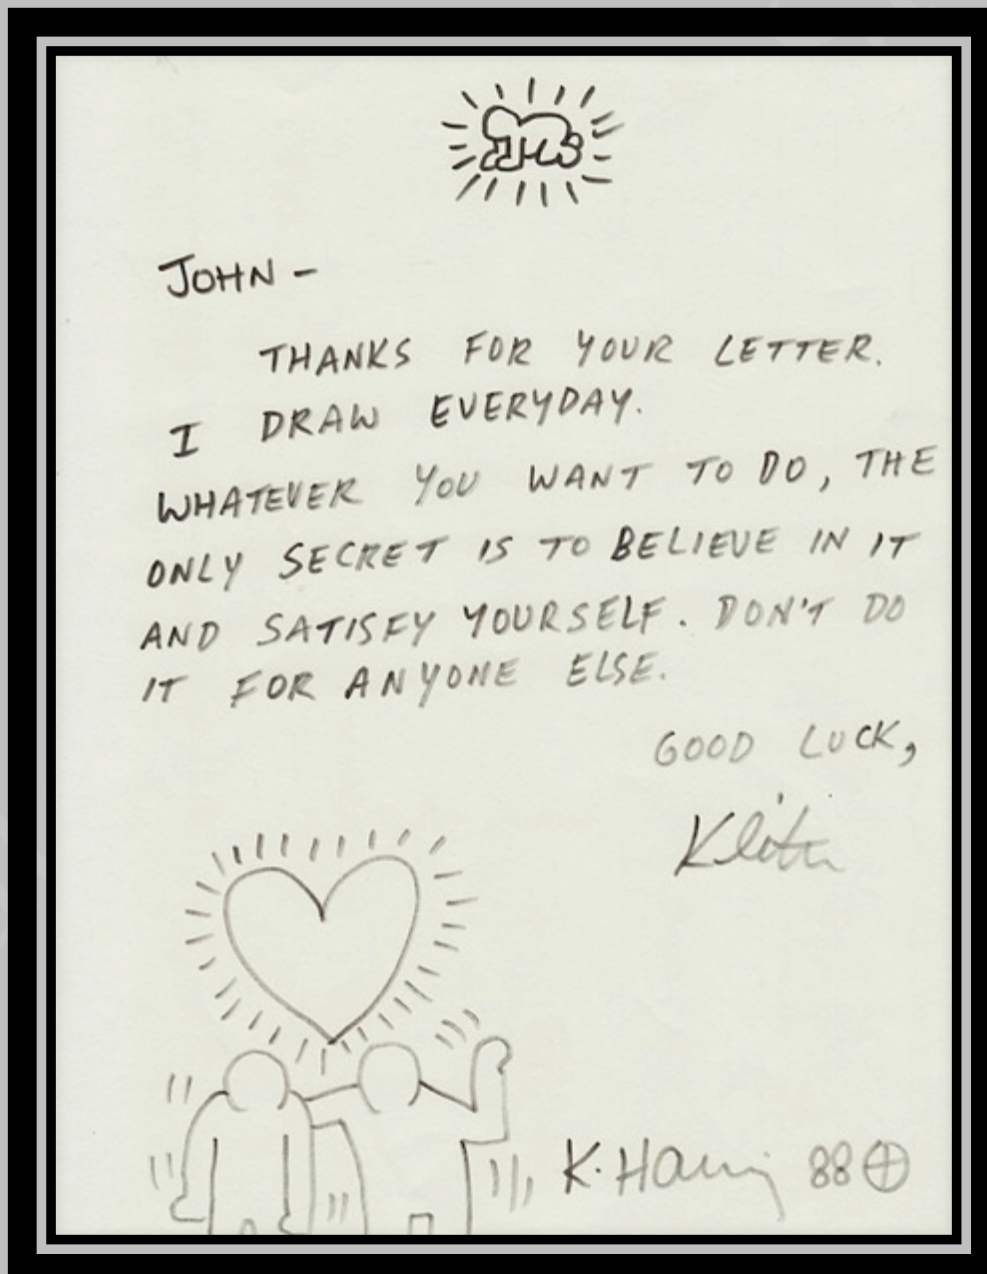 JOHN -
THANKS FOR YOUR LETTER.
I DRAW EVERYDAY.
WHATEVER YOU WANT TO DO, THE
ONLY SECRET IS TO BELIEVE IN IT
AND SATISFY YOURSELF. DON'T DO
IT FOR ANYONE ELSE.
GOOD LUCK,
Keith
K. Haring 88